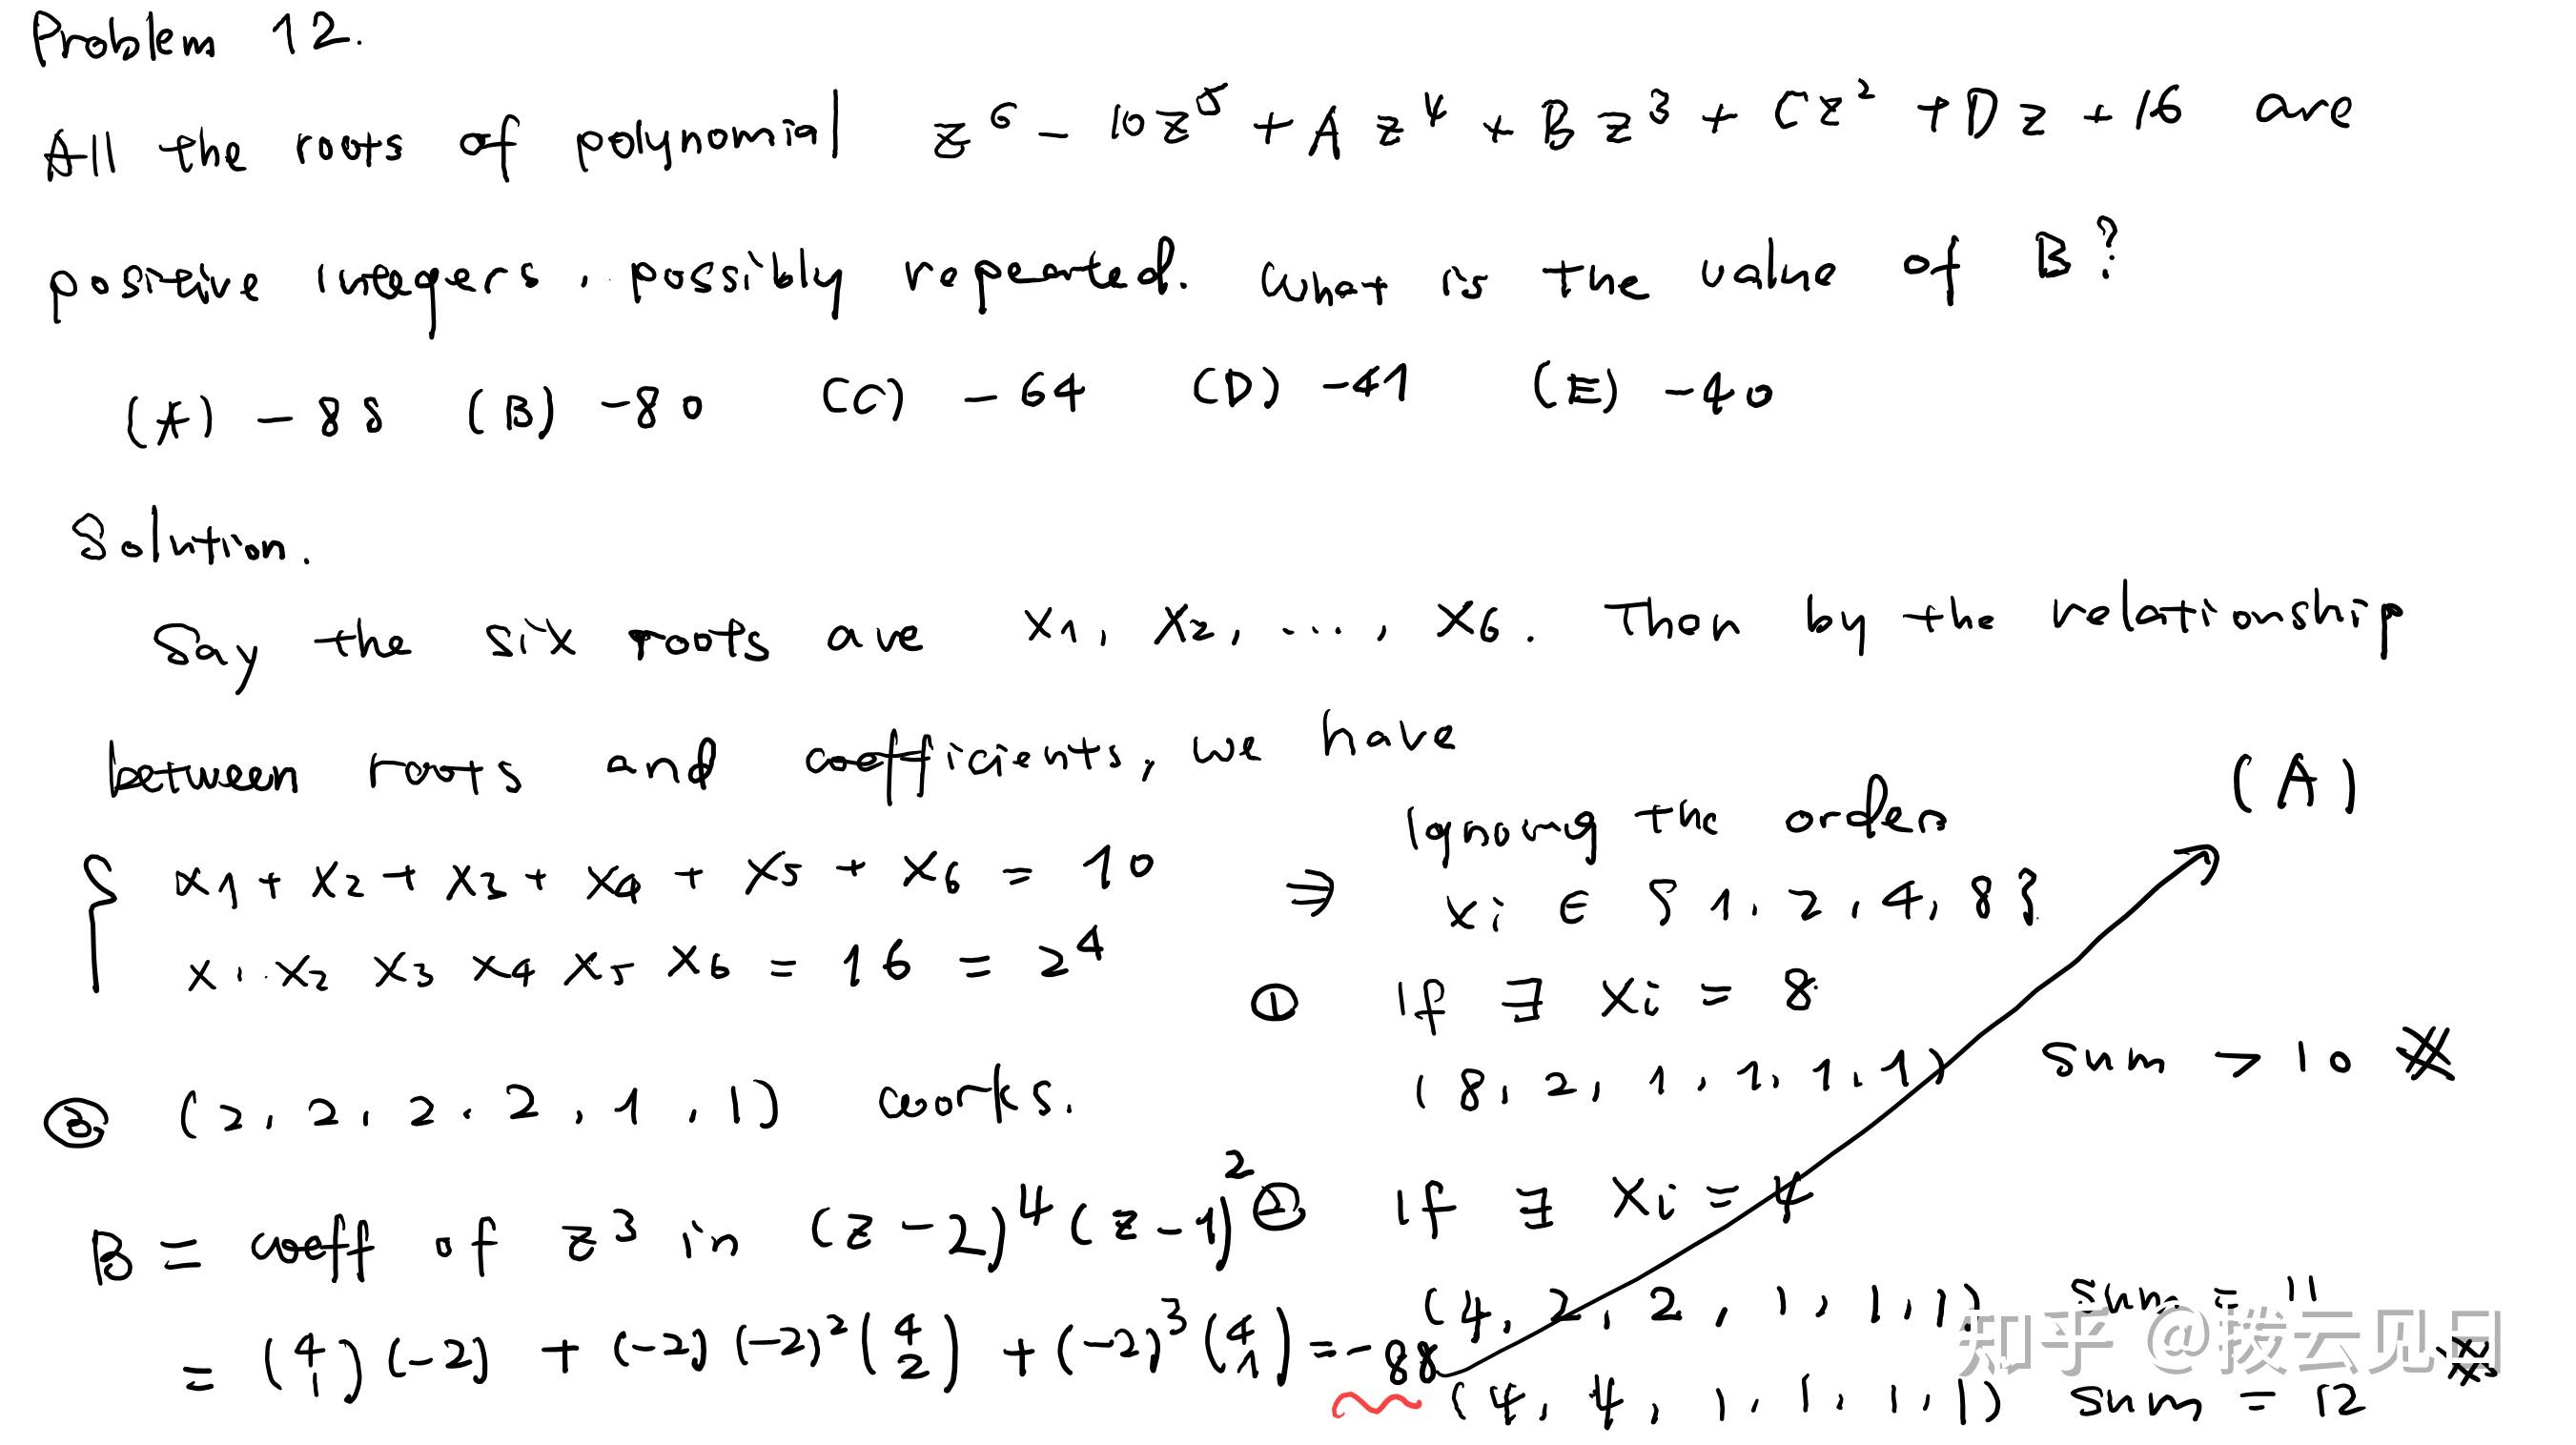 Problem 12.
All the roots of polynomial z^6 - 10z^5 + Az^4 + Bz^3 + Cz^2 + Dz + 16 are
positive integers, possibly repeated. What is the value of B?
(A) -88 (B) -80 (C) -64 (D) -41 (E) -40
Solution.
Say the six roots are x1, x2, ..., x6. Then by the relationship
between roots and coefficients, we have
x1 + x2 + x3 + x4 + x5 + x6 = 10
x1 · x2 x3 x4 x5 x6 = 16 = 2^4
⇒ Ignoring the order
xi ∈ {1, 2, 4, 8}
① If ∃ xi = 8
(8, 2, 1, 1, 1, 1) sum > 10 ※
② If ∃ xi = 4
(4, 2, 2, 1, 1, 1) sum = 11
(4, 4, 1, 1, 1, 1) sum = 12 ※
③ (2, 2, 2, 2, 1, 1) works.
B = coeff of z^3 in (z-2)^4(z-1)^2
= (4 1)(-2) + (-2)(-2)^2(4 2) + (-2)^3(4 1) = -88
(A)
知乎 @拨云见日